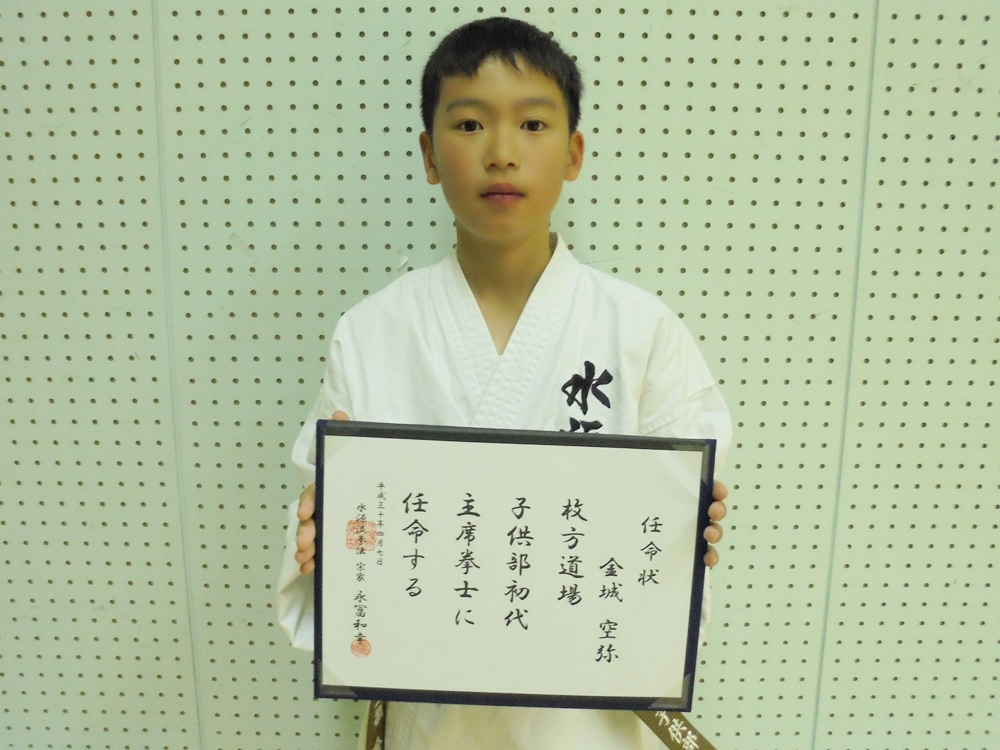 任命状
金城 空弥
枚方道場
子供部初代
主席拳士に
任命する
平成三十年四月七日
宗家 永冨和幸
水
子供部